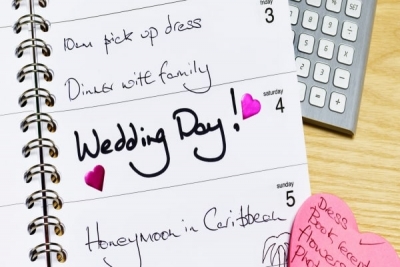 friday
3
10am pick up dress
Dinner with family
saturday
4
Wedding Day!
sunday
5
Honeymoon in Caribbean
Dress
Book
Flowers